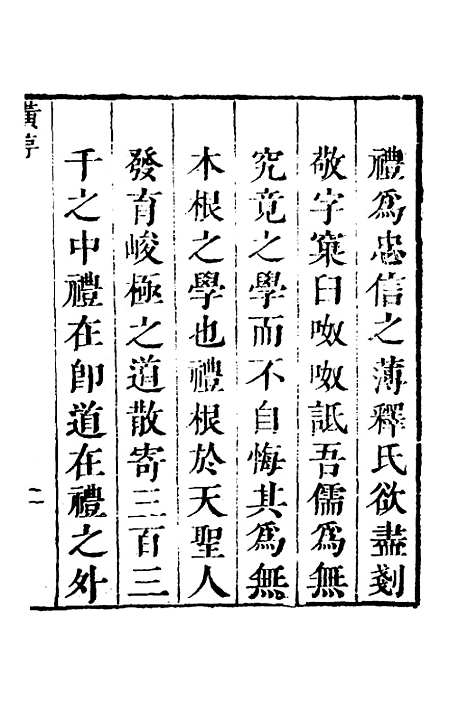 禮為忠信之薄釋氏欲盡剗
敬字窠臼呶呶詆吾儒為無
究竟之學而不自悔其為無
木根之學也禮根於天聖人
發育峻極之道散寄三百三
千之中禮在卽道在禮之外
黃序
二